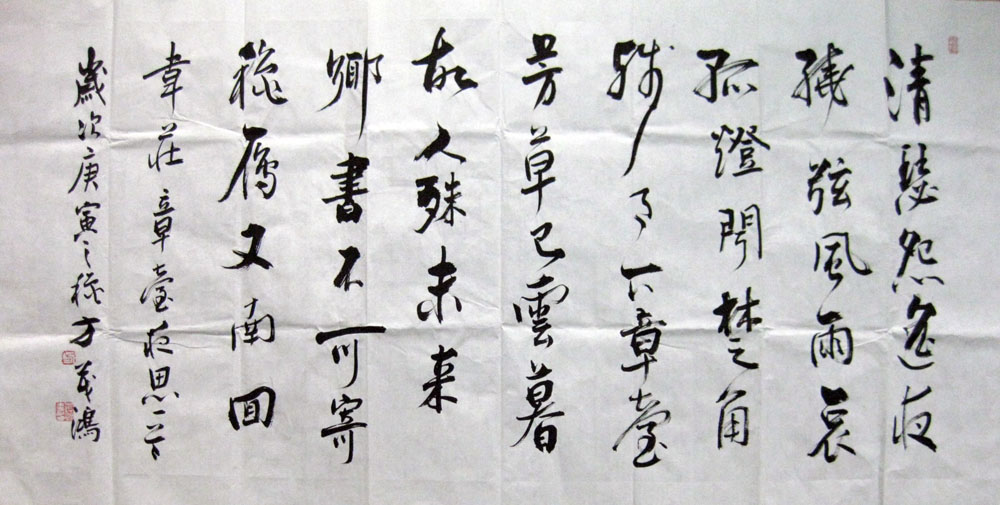 清瑟怨遙夜
繞弦風雨哀
孤燈聞楚角
殘月下章臺
芳草已雲暮
故人殊未来
鄉書不可寄
秋雁又南回
韋莊章臺夜思一首
歲次庚寅之秋方茂鴻